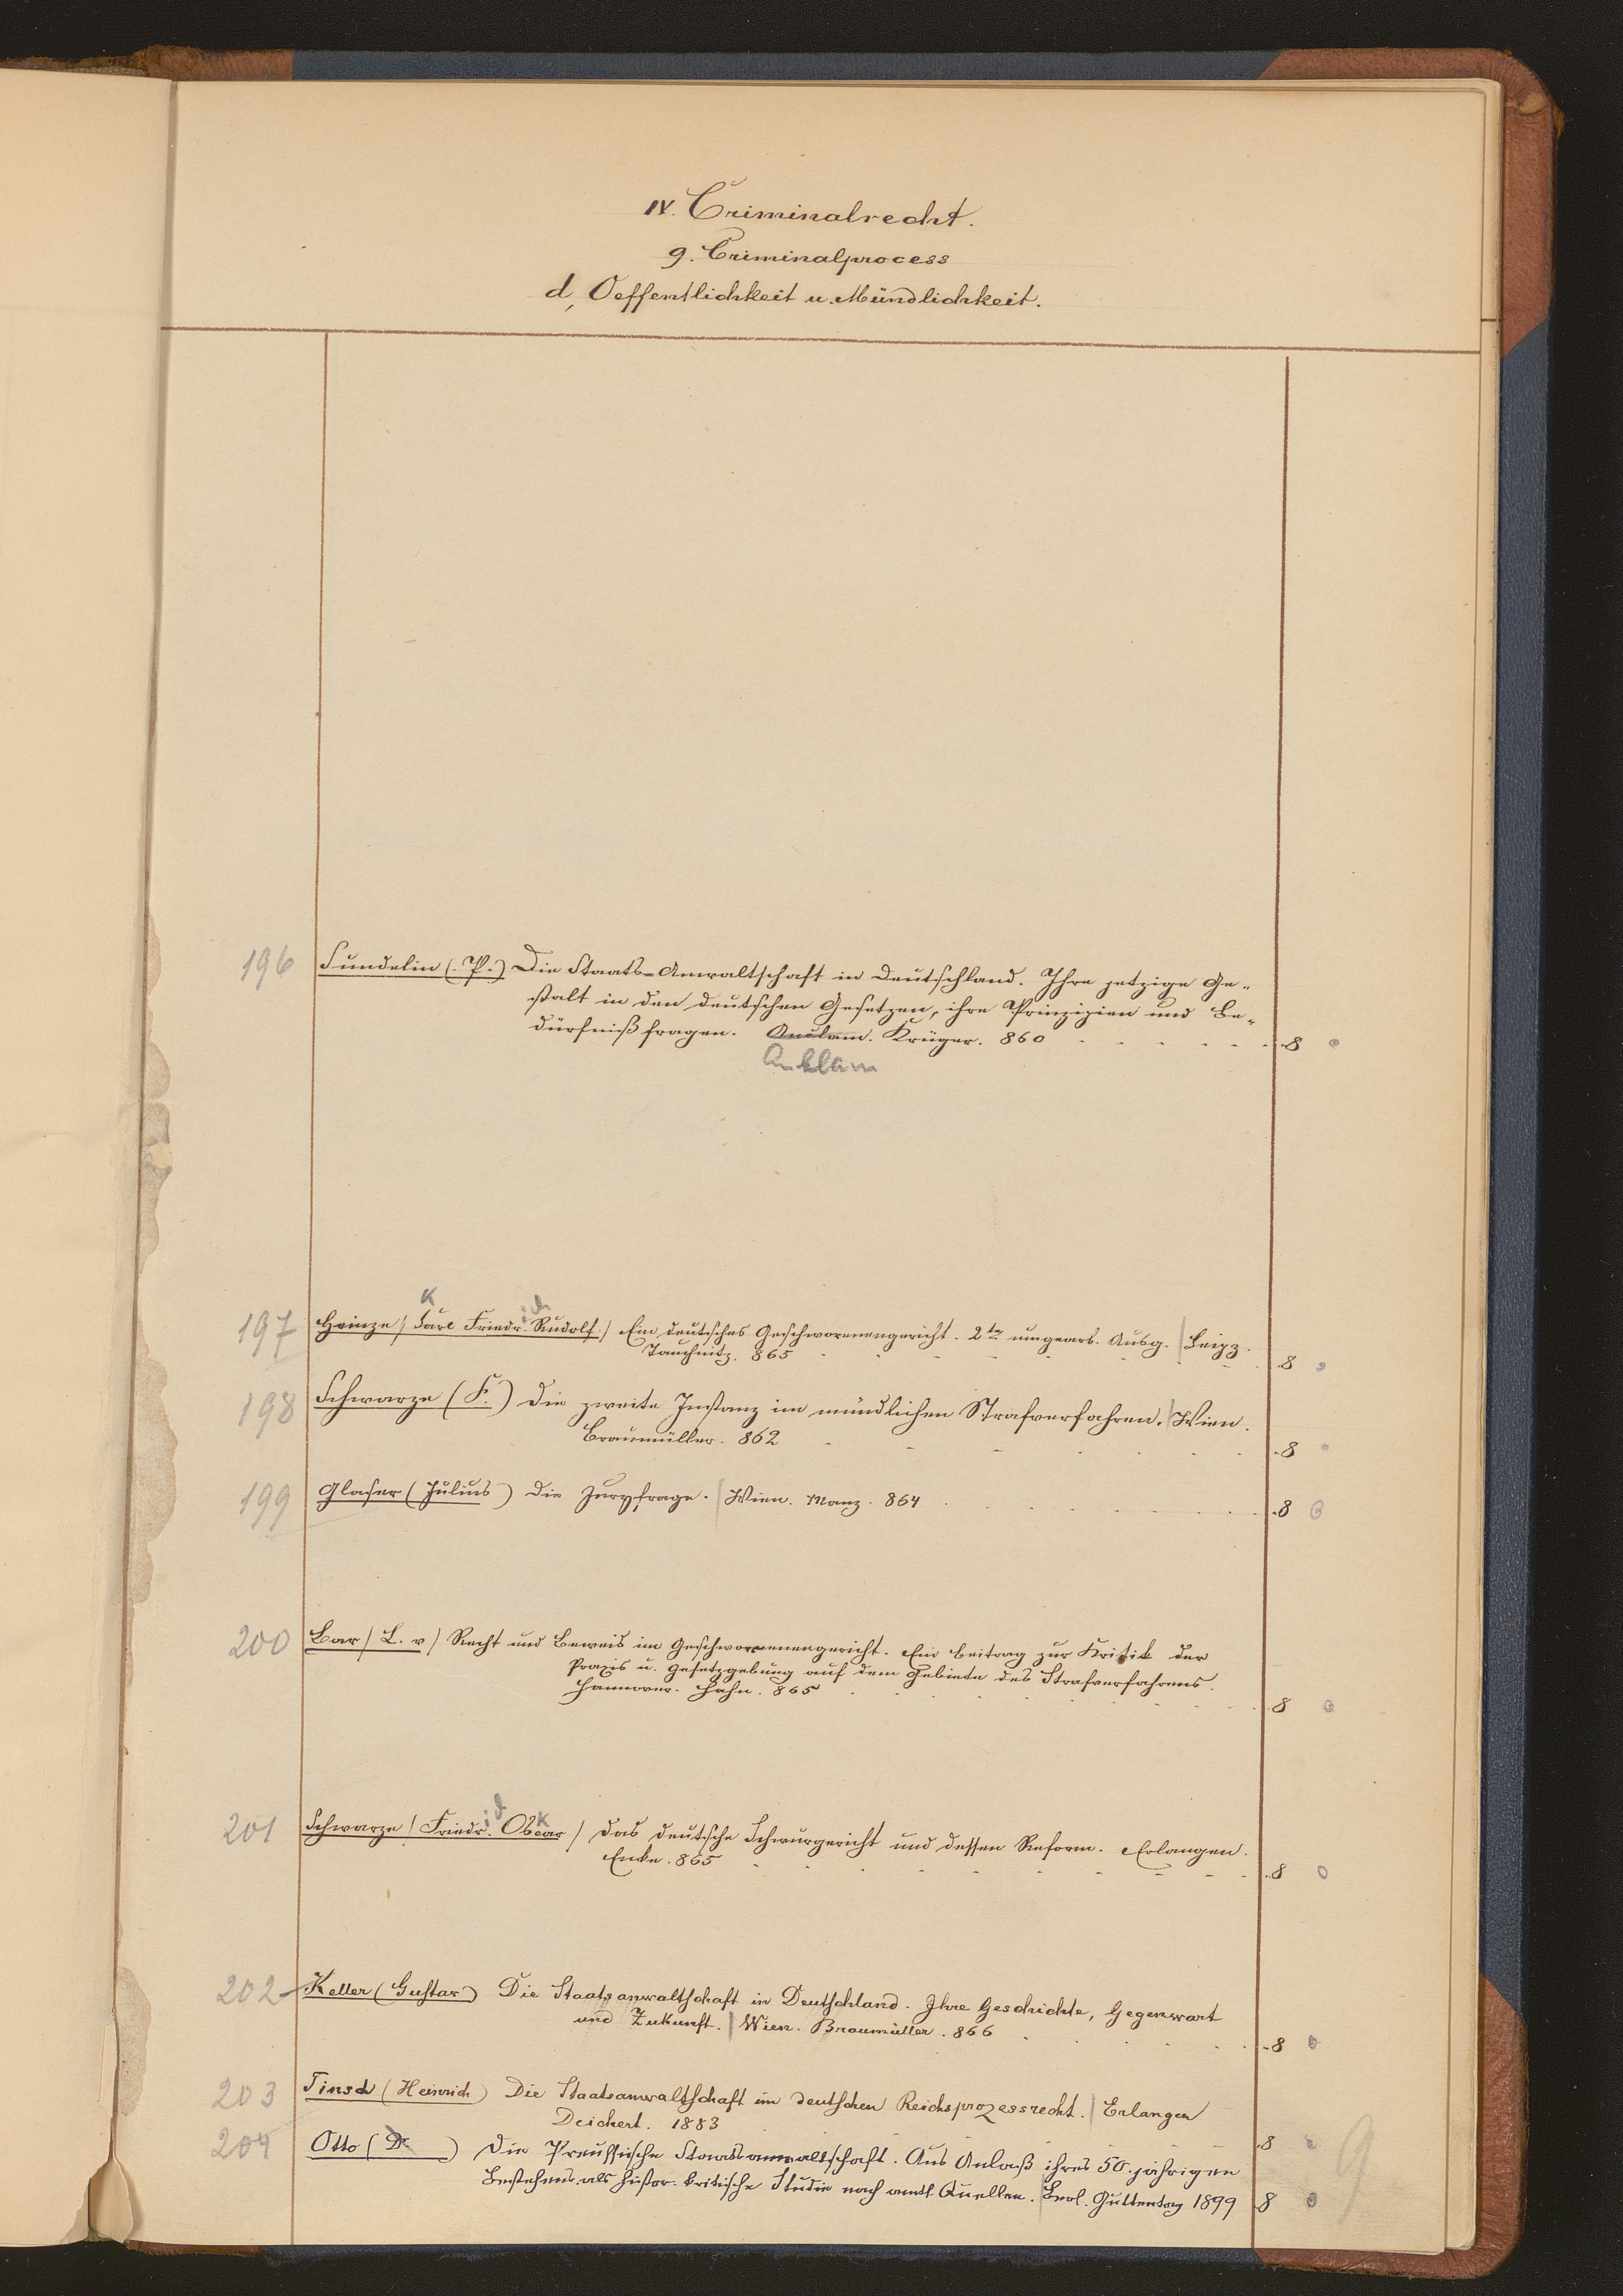 IV. Criminalrecht.
9. Criminalprocess
d, Oeffentlichkeit u. Mündlichkeit.
196 Sundelin (P.) Die Staats-Anwaltschaft in Deutschland. Ihre jetzige Ge-
stalt in den deutschen Gesetzen, ihre Prinzipien und Be-
dürfnißfragen. Anclam. Krüger. 860 . . . . . 8
Anklam
K id
197 Heinze (Carl Friedr. Rudolf.) Ein deutsches Geschworenengericht. 2te umgearb. Ausg. Leipz.
Tauchnitz. 865 . . . . . 8
198 Schwarze (F.) Die zweite Instanz im mündlichen Strafverfahren. Wien.
Braumüller. 862 . . . . . 8
199 Glaser (Julius) Die Juryfrage. Wien. Manz. 864 . . . . . 8
200 Bar (L. v) Recht und Beweis im Geschworenengericht. Ein Beitrag zur Kritik der
Praxis u. Gesetzgebung auf dem Gebiete des Strafverfahrens.
Hannover. Hahn. 865 . . . . . 8
201 Schwarze (Friedr. Oscar) Das deutsche Schwurgericht und dessen Reform. Erlangen.
Enke. 865 . . . . . 8
202 Keller (Gustav) Die Staatsanwaltschaft in Deutschland. Ihre Geschichte, Gegenwart
und Zukunft. Wien. Braumüller. 866 . . . . . 8
203 Tinsch (Heinrich) Die Staatsanwaltschaft im deutschen Reichsprozessrecht. Erlangen
Deichert. 1883 . . . . . 8
204 Otto (Dr. ) Die Preußische Staatsanwaltschaft. Aus Anlaß ihres 50. jährigen
Bestehens als histor. kritische Studie nach amtl. Quellen. Berl. Guttentag 1899 8